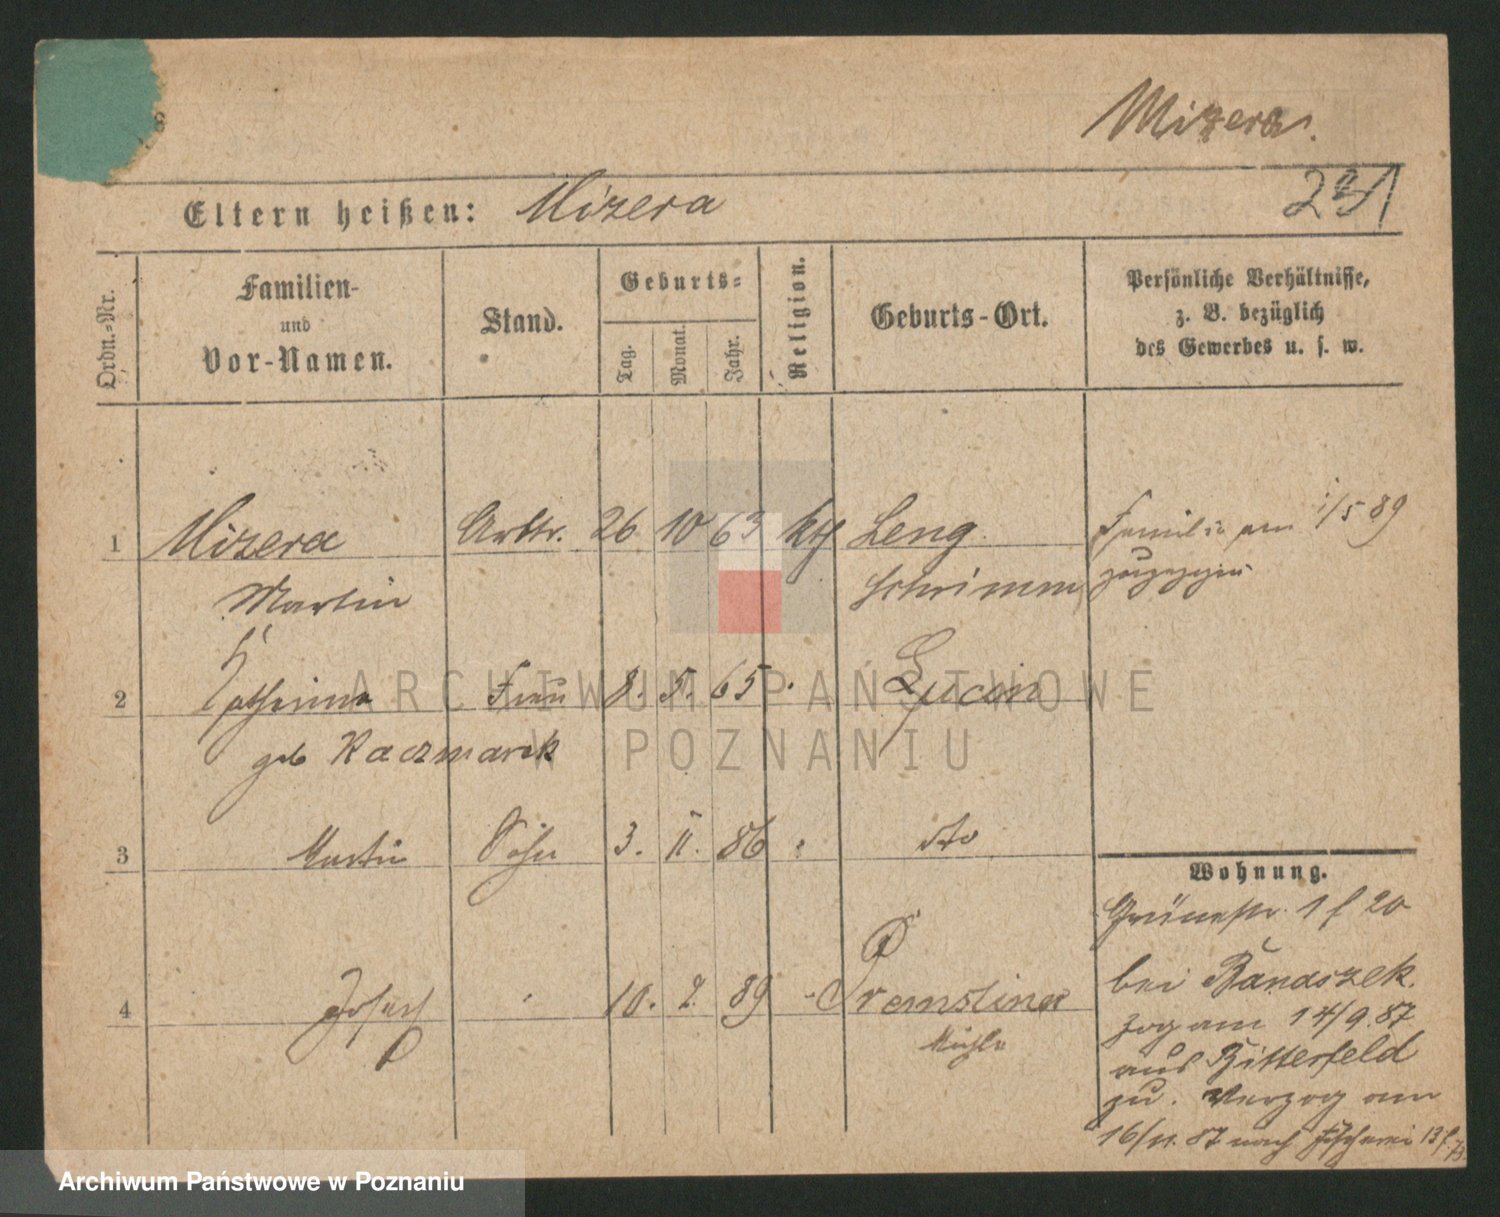 Mizera.
Eltern heißen: Mizera
231
Ordn.=Nr.
Familien-
und
Vor-Namen.
Stand.
Geburts=
Tag.
Monat.
Jahr.
Religion.
Geburts-Ort.
Persönliche Verhältnisse,
z. B. bezüglich
des Gewerbes u. s. w.
1 Mizera Arbtr. 26 10 63 kth Leng Familie am 1/5 89
Martin Schrimm zugezogen
2 Catharina Frau 8. 5. 65 Lucin
geb Kaczmarek
3 Martin Sohn 3. 11. 86 dto
4 Josef 10. 2. 89 Premsliner
Mühle
Wohnung.
Grünestr. 1 f 20
bei Banaszek.
Zog am 14/9.87
aus Bitterfeld
zu. Verzog am
16/11. 87 nach Fischerei 13 f.
ARCHIWUM PAŃSTWOWE
W POZNANIU
Archiwum Państwowe w Poznaniu